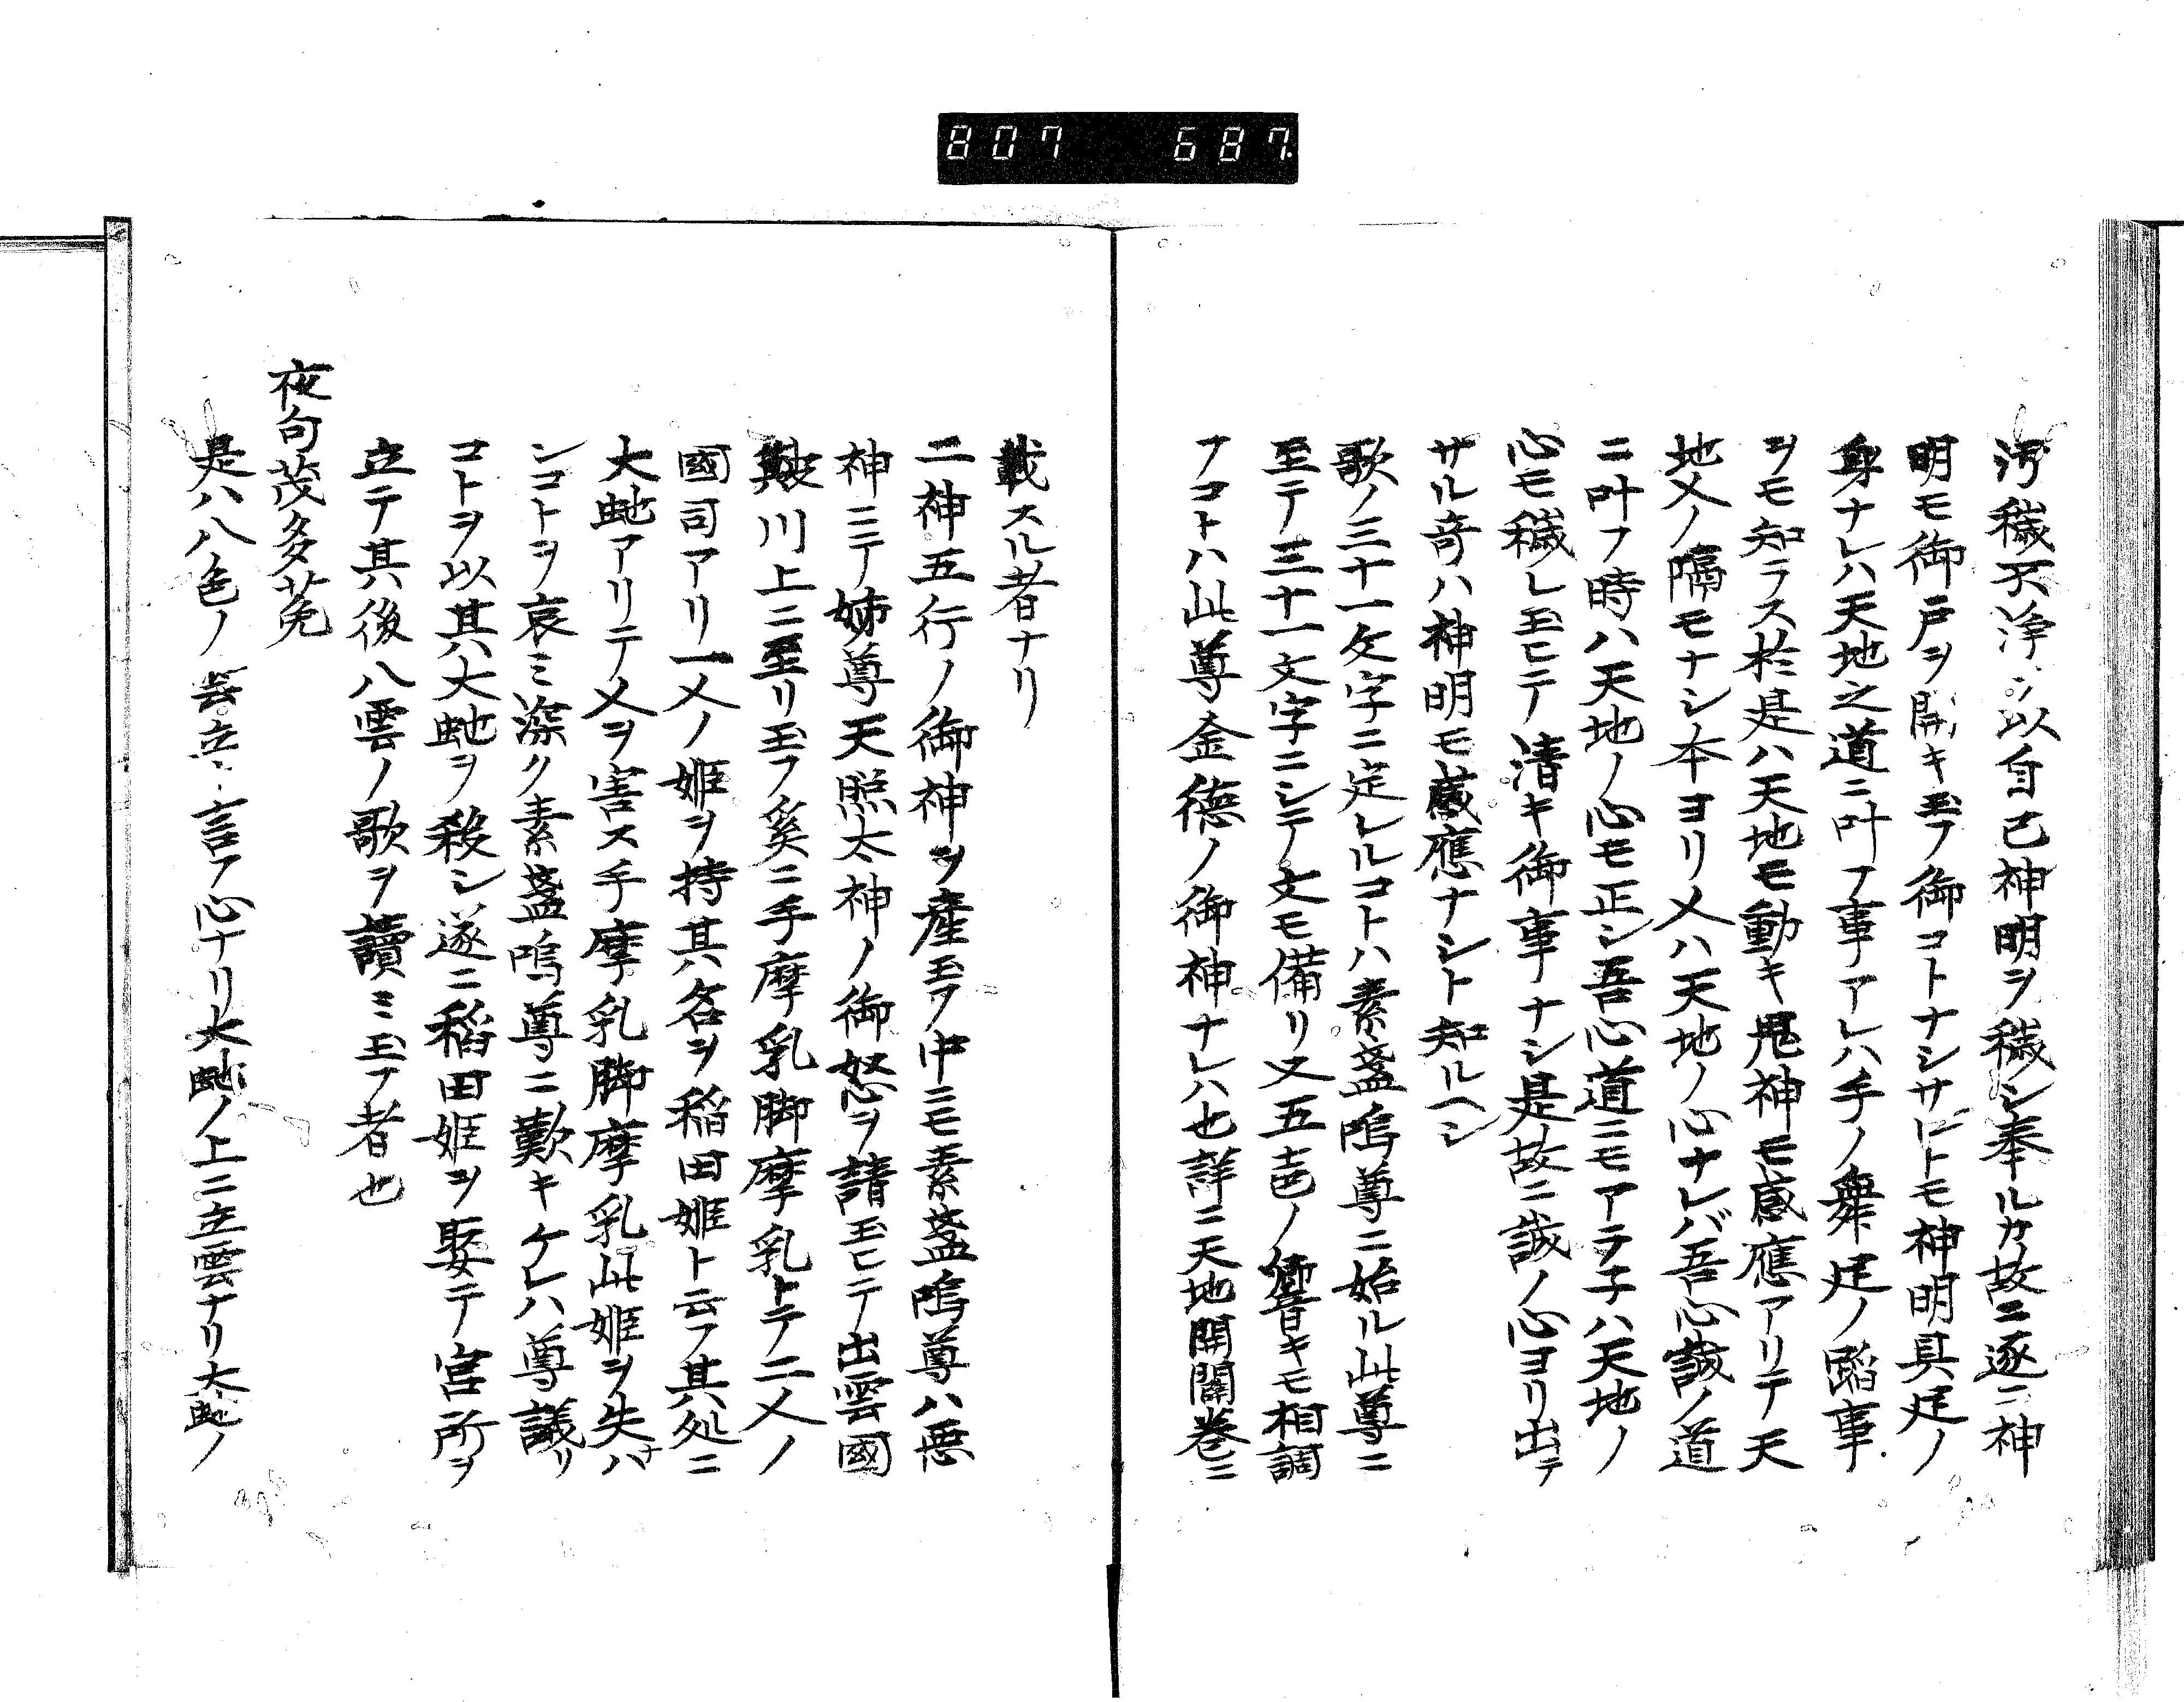 807 687.
汚穢不浄ヲ以自己神明ヲ穢シ奉ルカ故ニ逐ニ神
明モ御戸ヲ開キ玉フ御コトナシサレトモ神明具足ノ
身ナレハ天地之道ニ叶フ事アレハ手ノ舞足ノ踏事
ヲモ知ラス於是ハ天地モ動キ鬼神モ感應アリテ天
地人ノ隔モナシ本ヨリ人ハ天地ノ心ナレバ吾心誠ノ道
ニ叶フ時ハ天地ノ心モ正シ吾心道ニモアラ子ハ天地ノ
心モ穢レ玉ヒテ清キ御事ナシ是故ニ誠ノ心ヨリ出テ
サル哥ハ神明モ感應ナシト知ルヘシ
歌ノ三十一文字ニ定レルコトハ素盞嗚尊ニ始ル此尊ニ
至テ三十一文字ニシテ文モ備リ又五音ノ響キモ相調
フコトハ此尊金徳ノ御神ナレハ也詳ニ天地開闢巻ニ
載スル者ナリ
二神五行ノ御神ヲ産玉フ中ニモ素盞嗚尊ハ悪
神ニテ姉尊天照太神ノ御怒ヲ請玉ヒテ出雲國
簸川上ニ至リ玉フ爰ニ手摩乳脚摩乳トテ二人ノ
國司アリ一人ノ姫ヲ持其名ヲ稲田姫ト云フ其処ニ
大虵アリテ人ヲ害ス手摩乳脚摩乳此姫ヲ失ハナ
ンコトヲ哀ミ深ク素盞嗚尊ニ歎キケレハ尊議リ
コトヲ以其大虵ヲ殺シ逐ニ稲田姫ヲ娶テ宮所ヲ
立テ其後八雲ノ歌ヲ讀ミ玉フ者也
夜句茂多菟
是ハ八色ノ雲立ト言フ心ナリ大虵ノ上ニ立雲ナリ大虵ノ